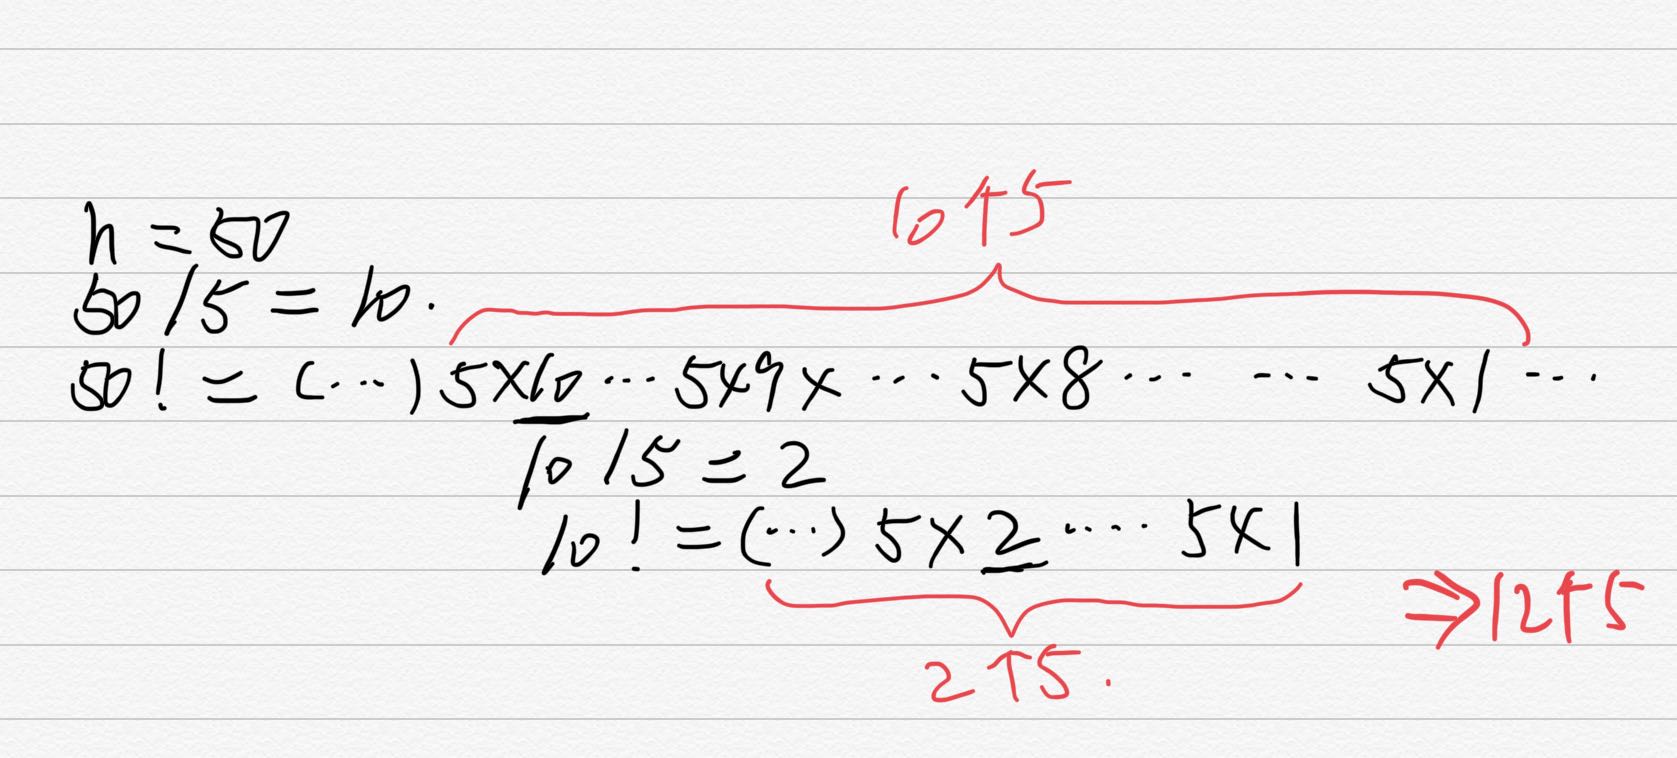 10个5
n = 50
50 / 5 = 10.
50! = (...) 5×10 ... 5×9× ... 5×8 ... ... 5×1 ...
10 / 5 = 2
10! = (...) 5×2 .... 5×1
⇒12个5
2个5.